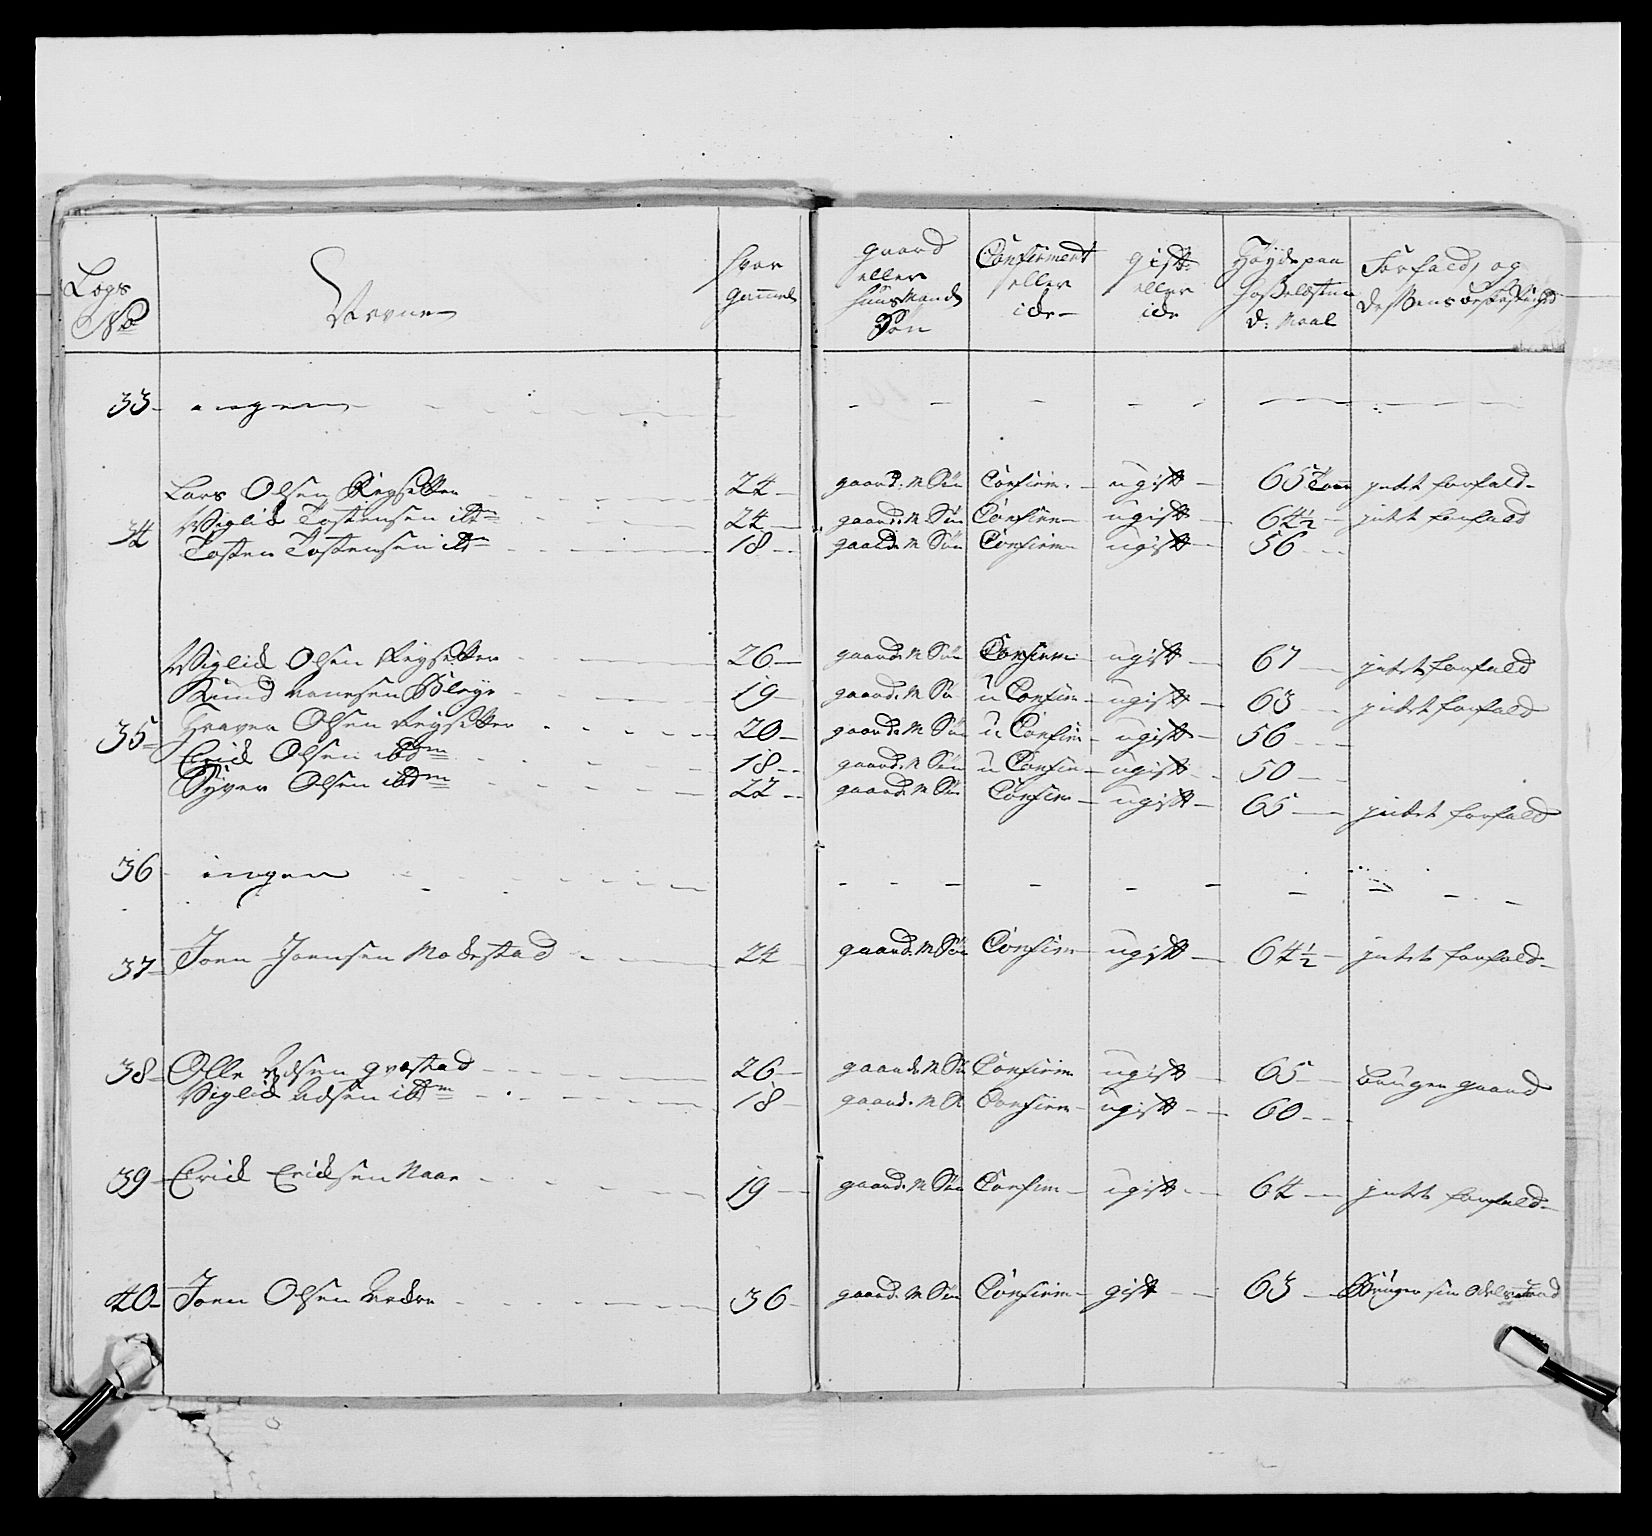 Logs No | Navne | hvor gammel | gaard eller huus Mands Søn | Confirmert eller icke | gift eller icke | Høyde paa Hoseleste d: Maal | Forfald, og deßens beskaffenhed
33 ingen
Lars Olsen Røysetter 24 gaard. M Søn Confirm. ugift 65 Tom intet forfald
34 Viglich Tostensen ibd 24 gaard. M Søn Confirm ugift 64 1/2 intet forfald
Tosten Tostensen ibd 18 gaard. M Søn Confirm ugift 56
Viglich Olsen Røysetter 26 gaard. M Søn Confirm ugift 67 intet forfald
Knud 19 gaard. M Søn u Confirm ugift 63 intet forfald
35 Olsen Røysetter 20 gaard. M Søn u Confirm ugift 56
Erich Olsen ibdm 18 gaard. M Søn u Confirm ugift 50
Syver Olsen ibdm 22 gaard. M Søn Confirm ugift 65 intet forfald
36 ingen
37 Joen Joensen Mokestad 24 gaard. M Søn Confirm ugift 64 1/2 intet forfald
38 Olle 26 gaard. M Søn Confirm ugift 65 bruger gaard
Viglich ibdm 18 gaard. M S Confirm ugift 60
39 Erich Erichsen 19 gaard. M Søn Confirm ugift 64 intet forfald
40 Joen Olsen 36 gaard. M Søn Confirm gift 63 Bruger sin